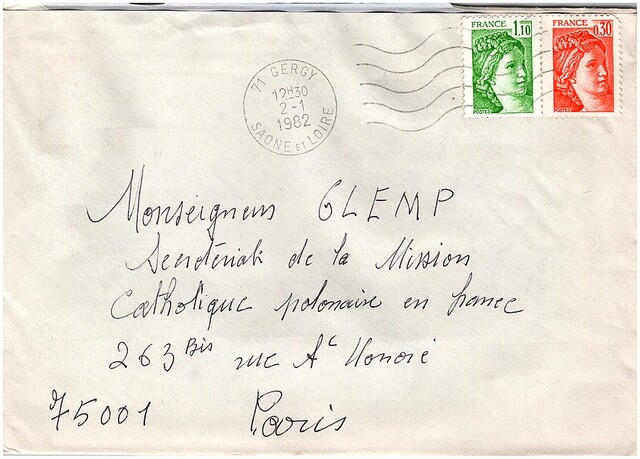 FRANCE 1,10
POSTES
FRANCE 0,30
POSTES
71 GERGY
12H30
2-1
1982
SAONE ET LOIRE
Monseigneur GLEMP
Secrétariat de la Mission
Catholique polonaise en france
263 Bis rue St Honoré
75001 Paris